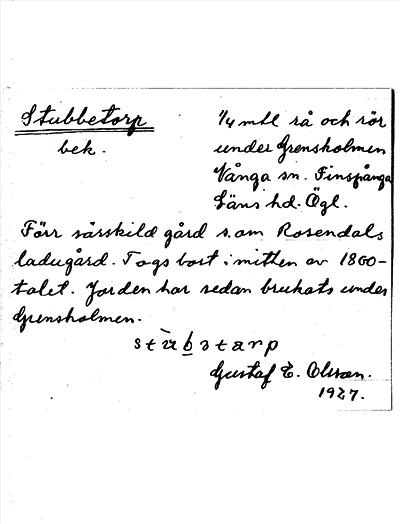 Stubbetorp
bek.
1/4 mtl rå och rör
under Grensholmen
Vånga sn. Finspånga
Läns hd. Ögl.
Förr särskild gård s.om Rosendals
ladugård. Togs bort i mitten av 1800-
talet. Jorden har sedan brukats under
Grensholmen.
Gustaf E. Olsson.
1927.